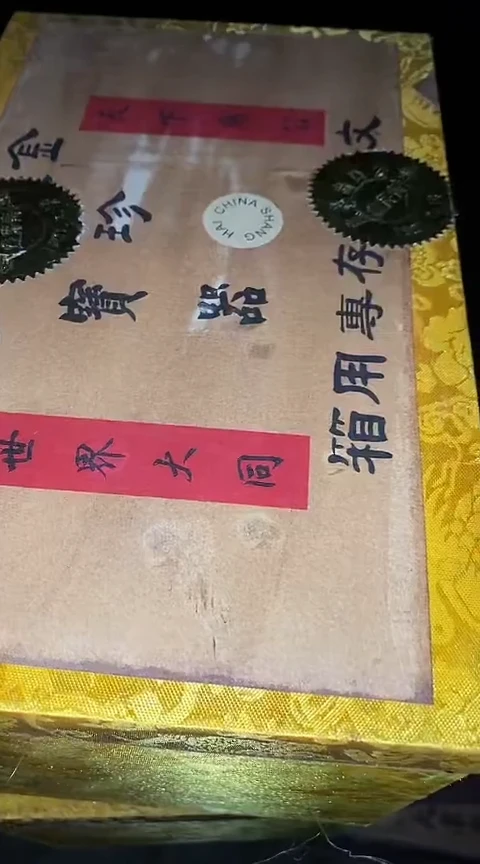 天下為公
文
存專用箱
CHINA SHANG HAI
珍
寶
器
世界大同